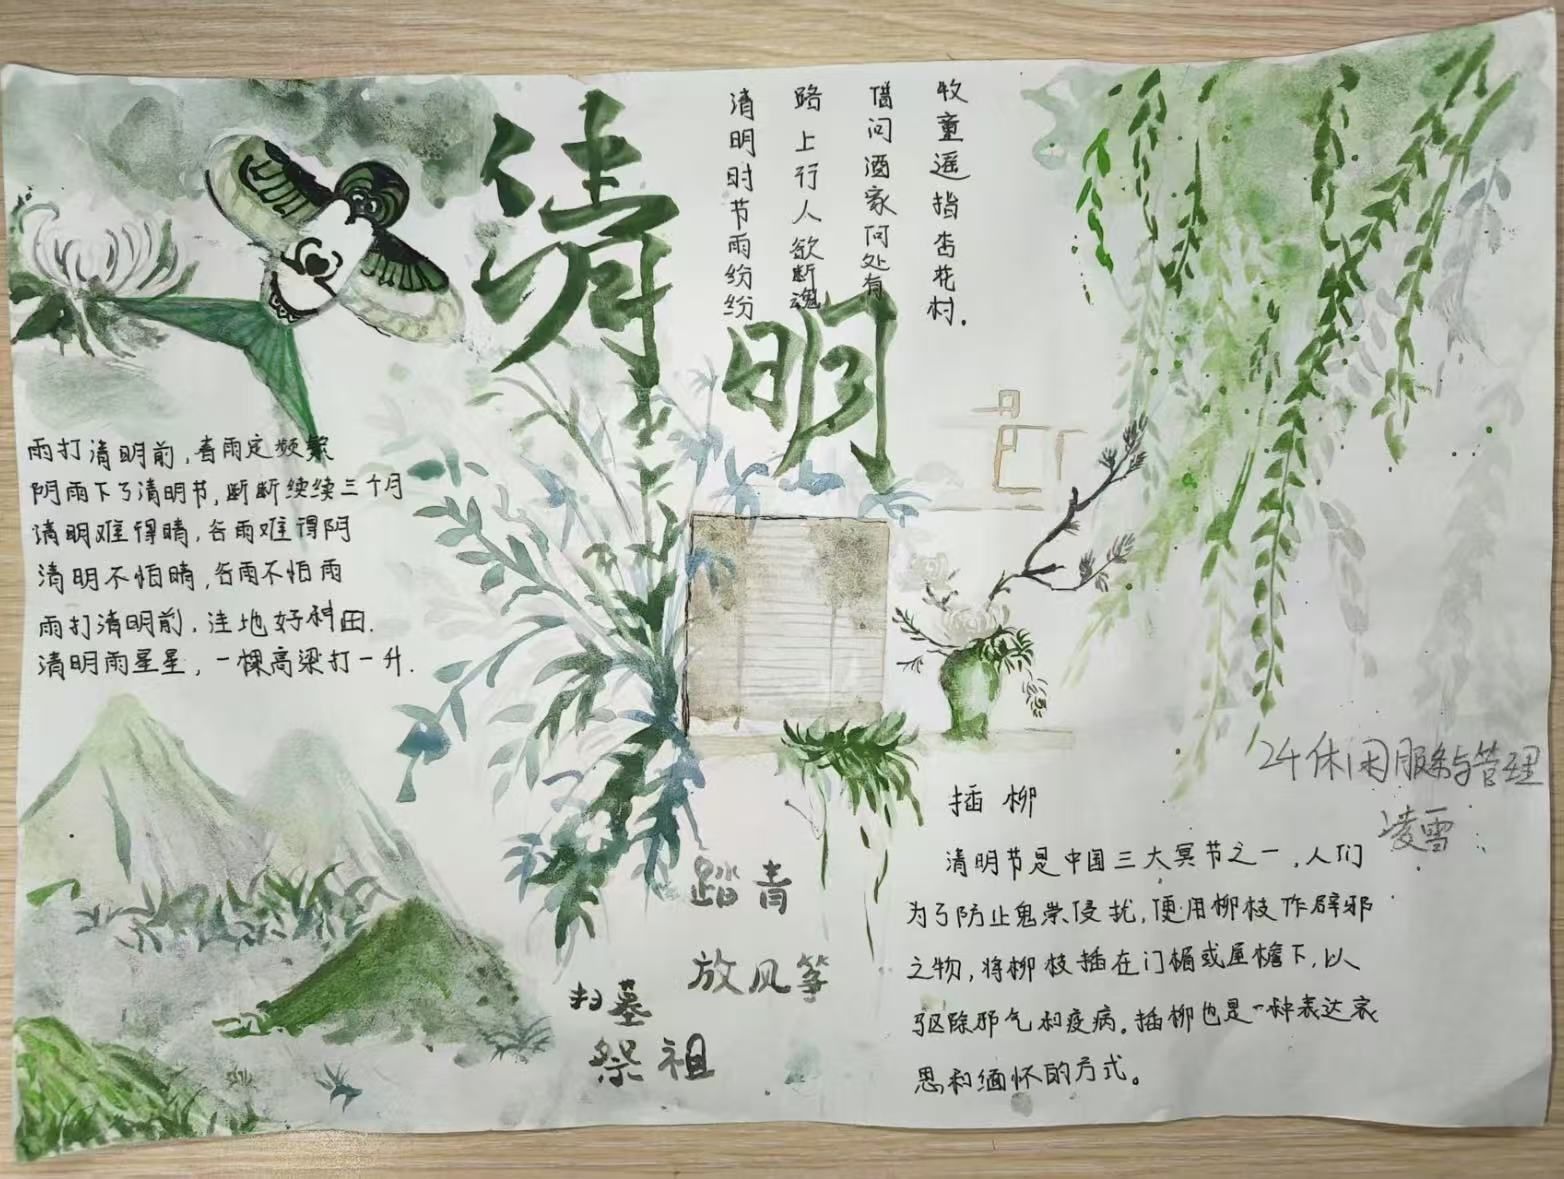 清明
清明时节雨纷纷
路上行人欲断魂
借问酒家何处有
牧童遥指杏花村.
雨打清明前,春雨定频繁
阴雨下了清明节,断断续续三个月
清明难得晴,谷雨难得阴
清明不怕晴,谷雨不怕雨
雨打清明前,洼地好种田.
清明雨星星,一棵高粱打一升.
踏青
放风筝
扫墓
祭祖
24休闲服务与管理
凌雪
插柳
清明节是中国三大冥节之一,人们
为了防止鬼祟侵扰,便用柳枝作辟邪
之物,将柳枝插在门楣或屋檐下,以
驱除邪气和疫病。插柳也是一种表达哀
思和缅怀的方式。